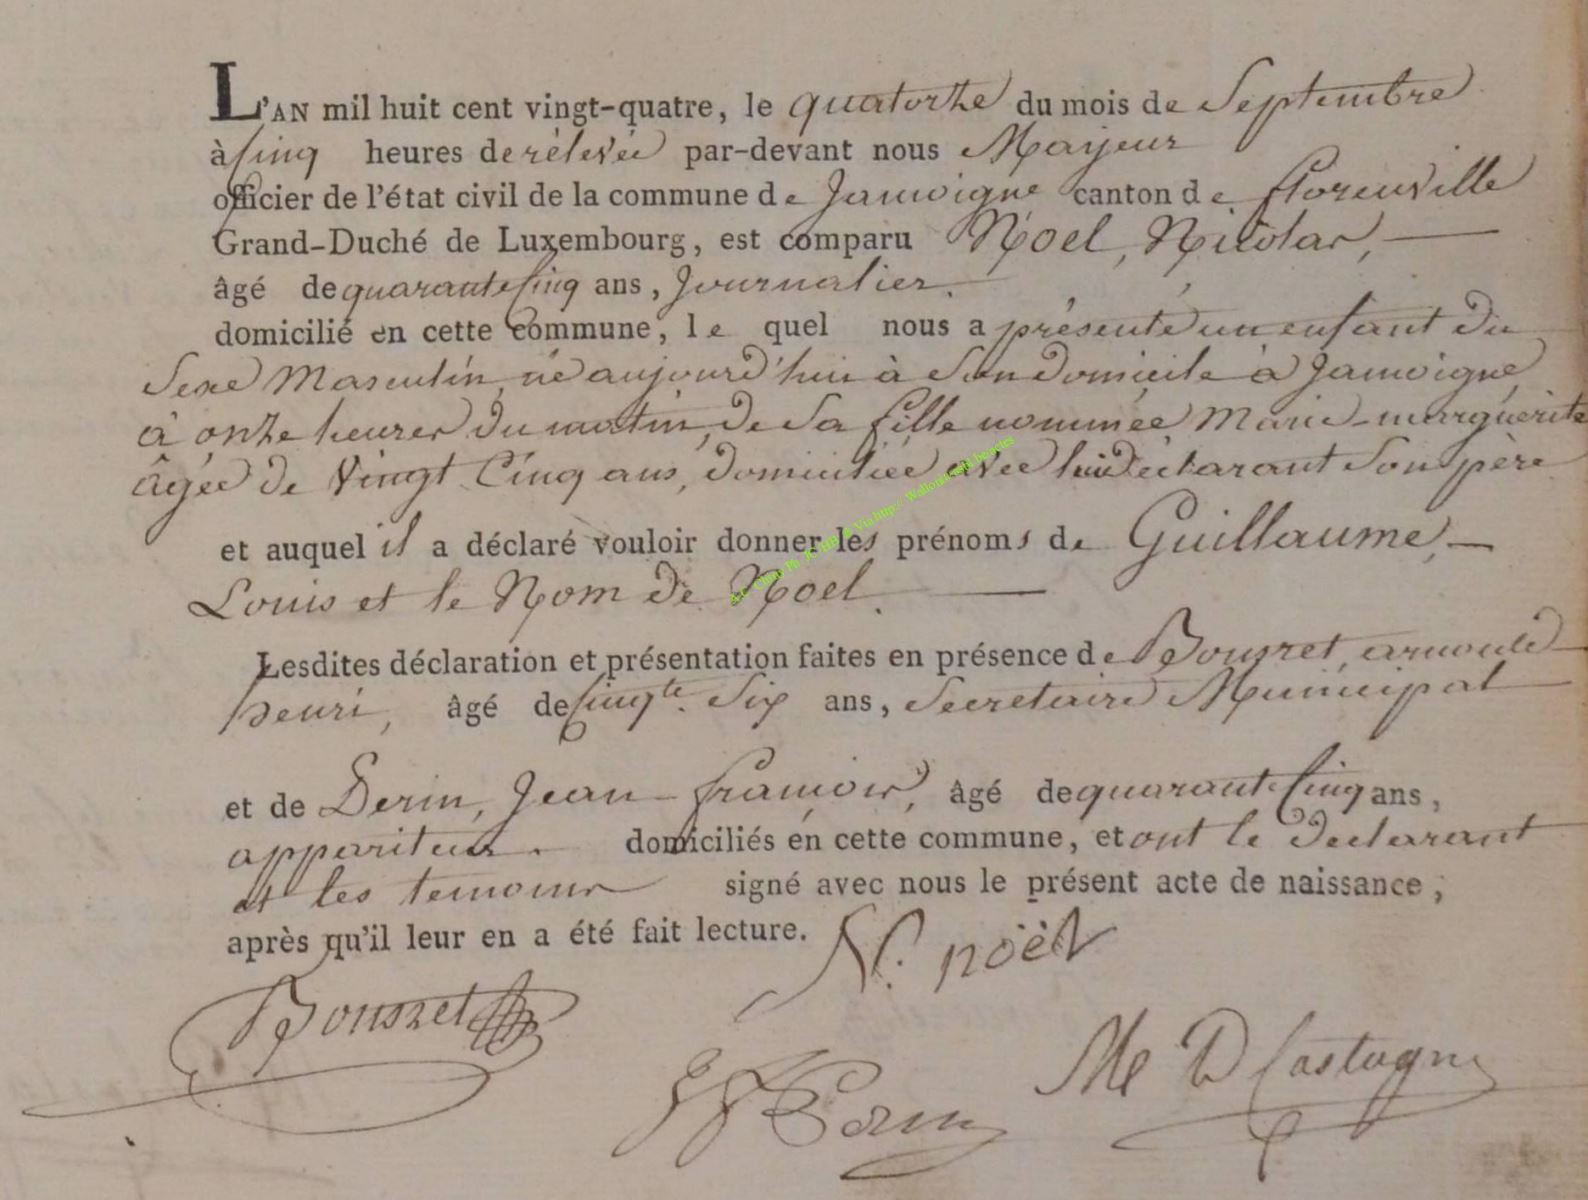 L'AN mil huit cent vingt-quatre, le quatorze du mois de Septembre
à Cinq heures de rélevée par-devant nous Mayeur
officier de l'état civil de la commune de Jamoigne canton de florenville
Grand-Duché de Luxembourg, est comparu Noel, Nicolas,
âgé de quarante Cinq ans, Journalier.
domicilié en cette commune, le quel nous a présenté un enfant du
Sexe Masculin, né aujourd'hui à Son domicile à Jamoigne
à onze heures du matin, de Sa fille nommée Marie-marguérite
âgée de Vingt Cinq ans, domiciliée avec lui déclarant Son père
et auquel il a déclaré vouloir donner les prénoms de Guillaume,
Louis et le Nom de Noel.
Lesdites déclaration et présentation faites en présence de Bousret, arnould
henri, âgé de Cinqte. Six ans, Secretaire Municipal
et de Derin, Jean françois, âgé de quarante Cinq ans,
appariteur. domiciliés en cette commune, et ont le déclarant
et les temoins signé avec nous le présent acte de naissance,
après qu'il leur en a été fait lecture.
N. noël
Bousret
M D Castagne